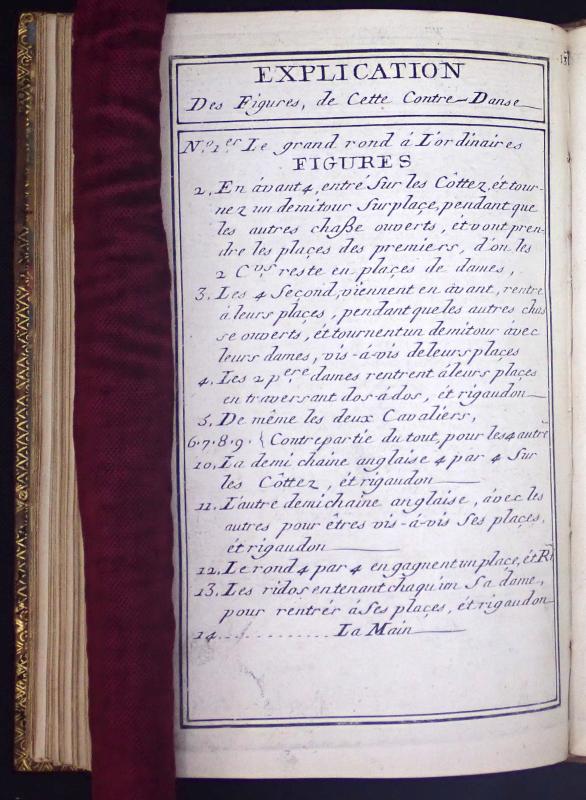 EXPLICATION
Des Figures, de Cette Contre-Danse
N.º 1.er Le grand rond á L'ordinaires
FIGURES
2, En ávant 4, entré Sur les Côttez, ét tour-
nez un demitour Surplaçe, pendant que
les autres chaße ouverts, ét vont pren-
dre les plaçes des premiers, d'ou les
2 C.vrs reste en plaçes de dames,
3, Les 4 Second, viennent en ávant, rentre
á leurs plaçes, pendant que les autres chas
se ouverts, ét tournent un demitour ávec
leurs dames, vis-á-vis de leurs plaçes
4, Les 2 p.ere dames rentrent á leurs plaçes
en traversant dos-á-dos, ét rigaudon
5, De même les deux Cavaliers,
6.7.8.9. { Contrepartie du tout, pour les 4 autre
10, La demi chaine anglaise 4 par 4 Sur
les Côttez, ét rigaudon
11, L'autre demi chaine anglaise, ávec les
autres pour êtres vis-á-vis Ses plaçes,
ét rigaudon
12, Le rond 4 par 4 en gagnent un plaçe, ét R.
13, Les ridos en tenant chaqu'un Sa dame,
pour rentrér á Ses plaçes, ét rigaudon
14 ............ La Main